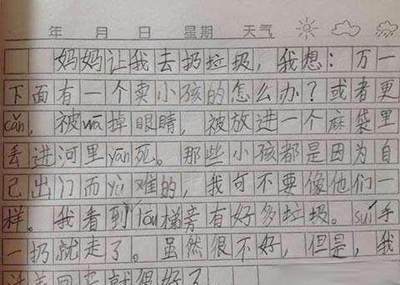 年 月 日 星期 天气
妈妈让我去扔垃圾，我想：万一
下面有一个卖小孩的怎么办？或者更
cǎn，被wā掉眼睛，被放进一个麻袋里
丢进河里yān死。那些小孩都是因为自
己出门而yù难的，我可不要像他们一
样。我看到lóu梯旁有好多垃圾。suí手
一扔就走了。虽然很不好，但是，我
活着回来就很好了